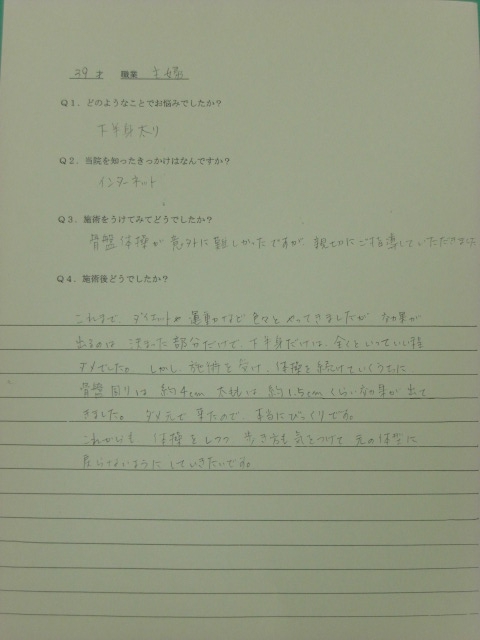 39 才 職業 主婦
Q1．どのようなことでお悩みでしたか？
下半身太り
Q2．当院を知ったきっかけはなんですか？
インターネット
Q3．施術をうけてみてどうでしたか？
骨盤体操が意外に難しかったですが、親切にご指導していただきました
Q4．施術後どうでしたか？
これまで、ダイエットや運動など色々とやってきましたが、効果が
出るのは 決まった部分だけで、下半身だけは、全くといっていい程
ダメでした。しかし、施術を受け、体操を続けていくうちに
骨盤回りは 約4cm 太ももは 約1.5cmくらい効果が出て
きました。ダメ元で来たので、本当にびっくりです。
これからも 体操をしつつ 歩き方も気をつけて 元の体型に
戻らないように していきたいです。